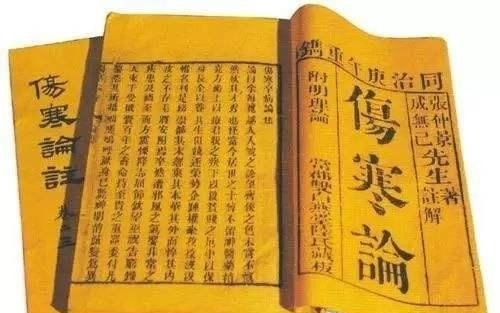 同治庚午年重鐫
張仲景先生著
成無己先生註解
傷寒論
附明理論
常郡雙白燕堂陸氏藏板
傷寒卒病論集
論曰余每覽越人入虢之診望齊侯之色未嘗不慨
然歎其才秀也怪當今居世之士曾不留神醫藥精
究方術上以療君親之疾下以救貧賤之厄中以保
身長全以養其生但競逐榮勢企踵權豪孜孜汲汲
惟名利是務崇飾其末忽棄其本華其外而悴其內
皮之不存毛將安附焉卒然遭邪風之氣嬰非常之
疾患及禍至而方震慄降志屈節欽望巫祝告窮歸
天束手受敗賫百年之壽命持至貴之重器委付凡
醫恣其所措咄嗟嗚呼厥身已斃神明消滅變為異
傷寒論註